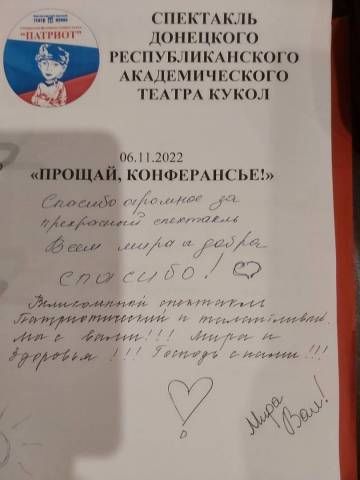 "ПАТРИОТ"
СПЕКТАКЛЬ
ДОНЕЦКОГО
РЕСПУБЛИКАНСКОГО
АКАДЕМИЧЕСКОГО
ТЕАТРА КУКОЛ
06.11.2022
«ПРОЩАЙ, КОНФЕРАНСЬЕ!»
Спасибо огромное за
прекрасный спектакль
Всем мира и добра
спасибо!
Великолепный спектакль
Патриотический и талантливый.
Мы с вами!!! Мира и
Здоровья !!! Господь с нами!!!
Мира
Вам!